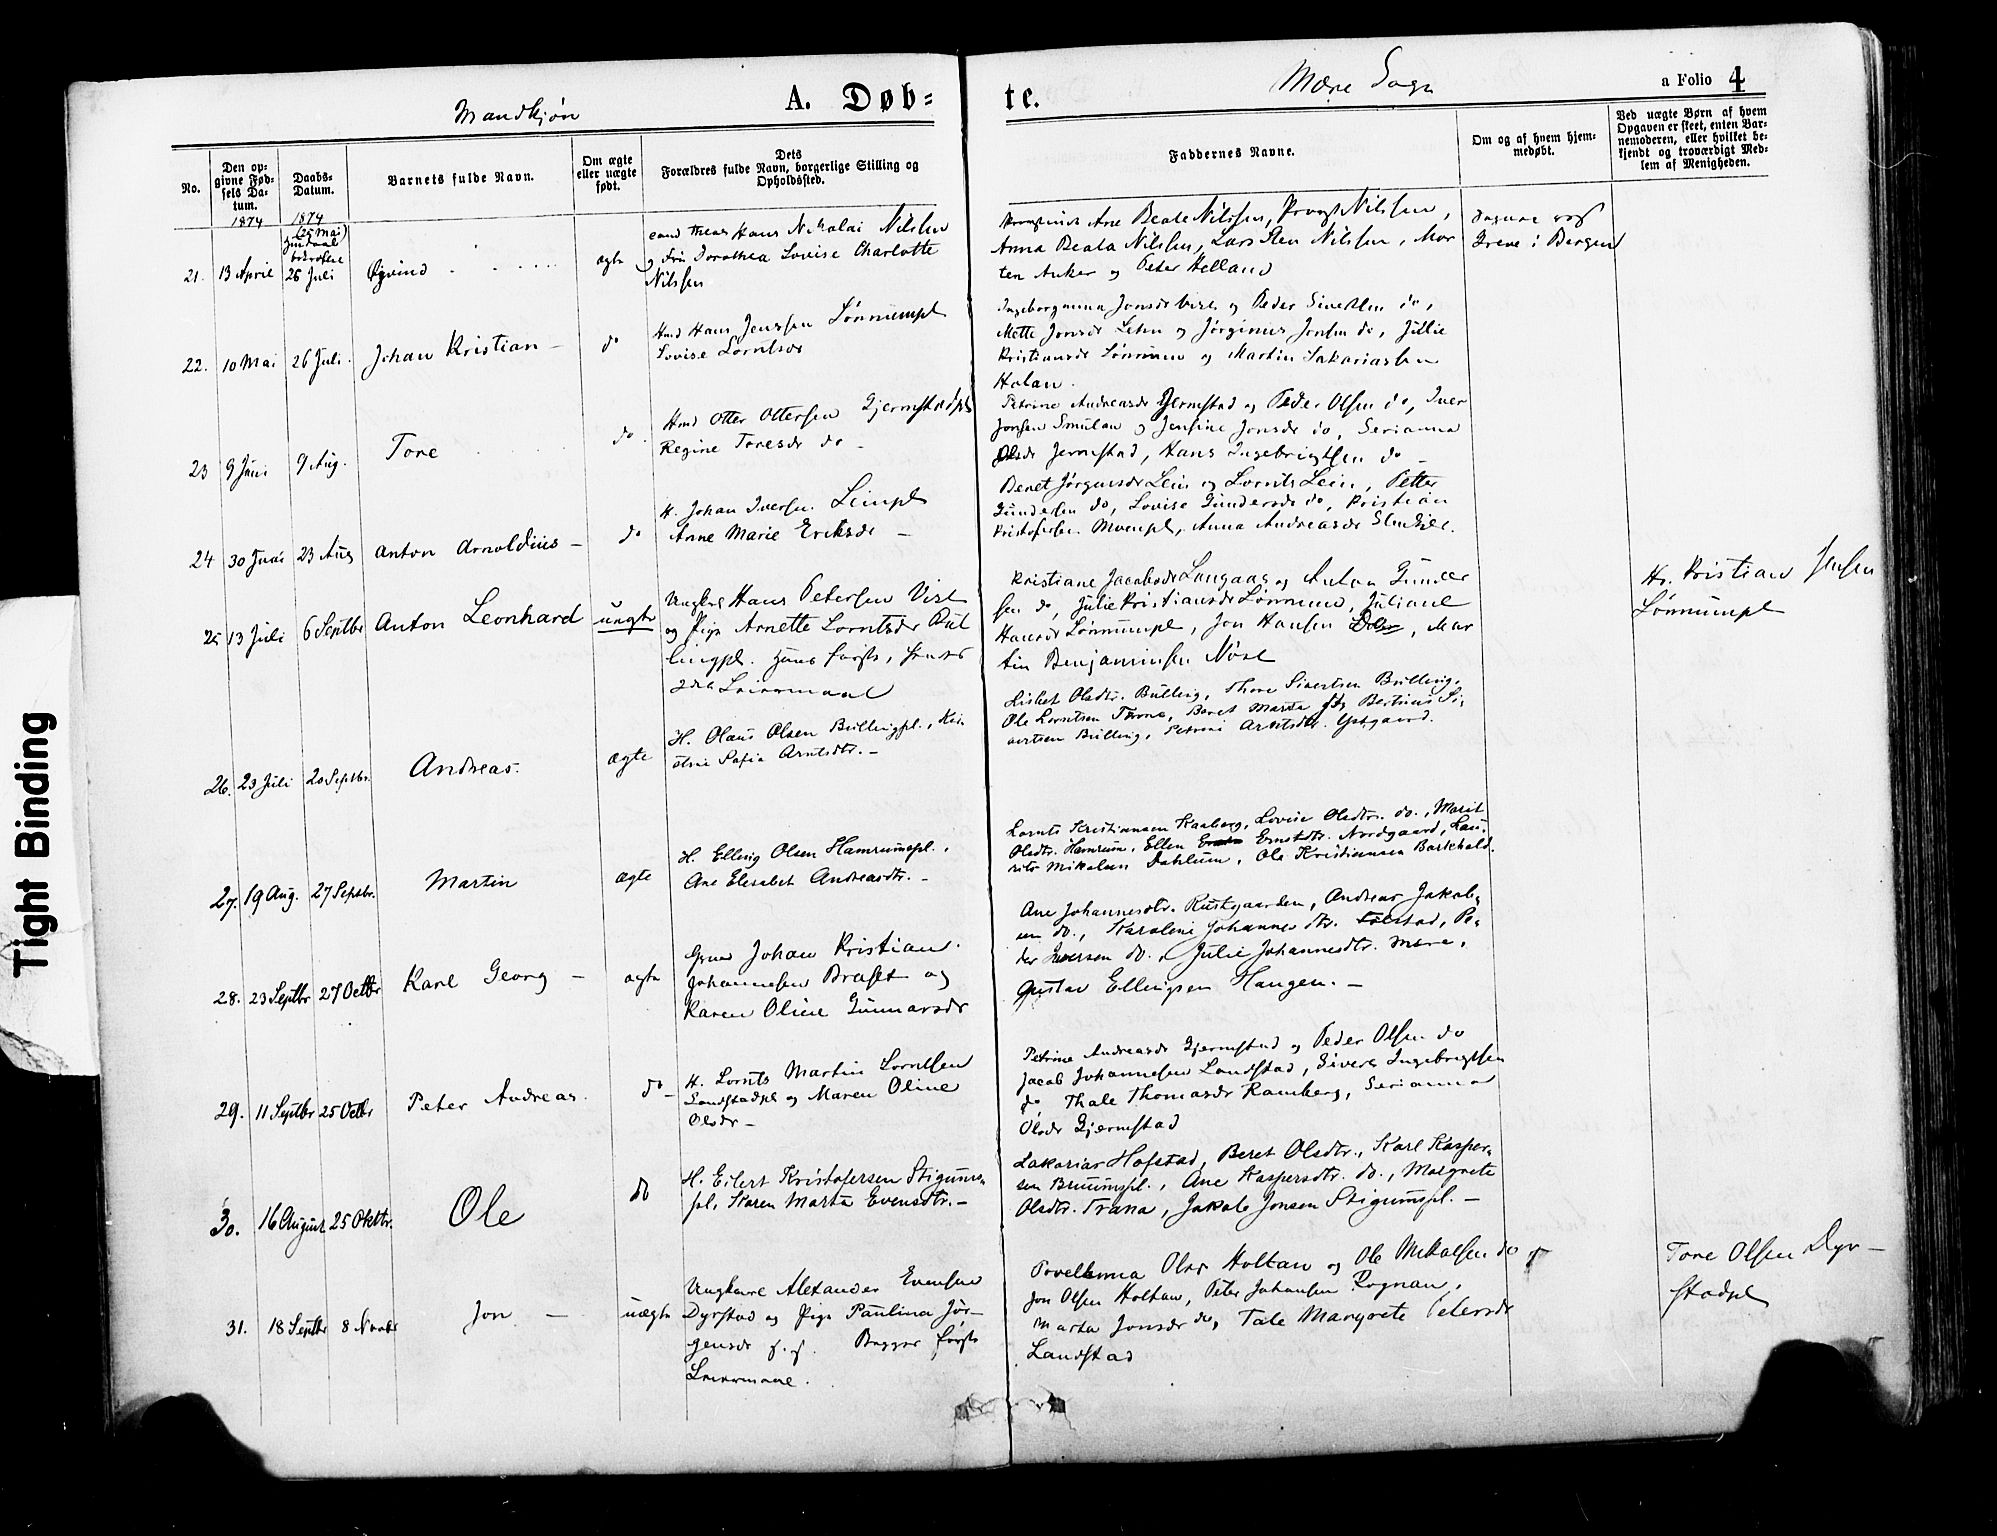 Mandkjøn
A. Døb=
te.
Mære Sogn
a Folio 4
No.
Den op=
givne Fød=
sels Da=
tum.
Daabs=
Datum.
Barnets fulde Navn.
Om ægte
eller uægte
født.
Dets
Forældres fulde Navn, borgerlige Stilling og
Opholdssted.
Faddernes Navne.
Om og af hvem hjem=
medøbt.
Ved uægte Børn af hvem
Opgaven er skeet, enten Bar=
nemoderen, eller hvilket be=
kjendt og troværdigt Med=
lem af Menigheden.
1874
1874
(25 Mai)
21. 13 April 26 Juli Øyvind ægte
Hans Nikolai Nilssen
og Dorothea Lovise Charlotte
Nilssen
Ane Beate Nilssen, Provst Nilssen,
Anna Beata Nilssen, Lars Sten Nilssen, Mor
ten Anker og Peter Helland
Greve i Bergen
22. 10 Mai 26 Juli. Johan Kristian – do
Hmd Hans Jenssen Lønnumpl
Lovise Lorntsdr
Ingeborganna Jonsdr Vist og Peder Sivertsen do,
Mette Jonsdr Lein og Jørginus Jensen do, Julie
Kristiansdr Lønnum og Martin Sakariassen
Holan.
23 9 Juni 9 Aug. Tore do.
Hmd Otter Ottersen Gjermstadpl
Regine Toresdr do –
Petrine Andreasdr Gjermstad og Peder Olsen do, Iver
Jonsen Smulan og Jensine Jonsdr do, Serianna
Olsdr Jermstad, Hans Ingebrigtsen do –
24 30 Juni 23 Aug Anton Arnoldius – do
H. Johan Iversen Leinpl
Anne Marie Eriksdr –
Beret Jørgensdr Lein og Lornts Lein, Petter
Gundersen do, Lovise Gundersdr do, Kristian
Kristofersen Moenpl, Anna Andreasdr
25 13 Juli 6 Septbr Anton Leonhard uægte
Ungkrl Hans Petersen Vist
og Pige Arnette Lorntsdr Bul
lingpl. Hans første, hendes
2det Leiermaal
Kristiane Jacobsdr Langaas og Anton Gunder
sen do, Julie Kristiansdr Lønnum, Juliane
Hansdr Lønnumpl, Jon Hansen, Mar
tin Benjaminsen Nøst
H. Kristian Jensen
Lønnumpl
26. 23 Juli 20 Septbr. Andreas. ægte
H. Olaus Olsen Bullingpl., Kri
stine Sofia Arntsdtr. –
Lisbet Olsdtr. Bulling, Thore Sivertsen Bulling,
Ole Lorntsen Trana, Beret Marta og Bertinus Si,
vertsen Bulling, Petrine Arntsdtr. Ystgaard.
27. 19 Aug. 27 Septbr. Martin ægte
H. Elling Olsen Hamrumspl.,
Ane Elisabet Andreasdtr. –
Lornts Kristiansen Kaaberg, Lovise Olsdtr. do., Marit
Olsdtr. Hamrum, Ellen Ernstdtr. Nordgaard, Lau,
rits Mikalsen Dahlum, Ole Kristiansen Barkhald.
28. 23 Septbr 27 Octbr Karl Georg – ægte
Johan Kristian
Johannesen Braset og
Karen Oline Gunnarsdr
Ane Johannesdtr. Rustgaarden, Andreas Jakob,
sen do., Karoline Johannesdtr. Tolstad, Pe,
der Iversen do., Julie Johannesdtr. Mære,
Gustav Ellingsen Haugen. –
29. 11 Septbr 25 Octbr Peter Andreas. do –
H. Lornts Martin Lorntsen
Landstadpl og Maren Oline
Olsdr –
Petrine Andreasdr Gjermstad og Peder Olsen do
Jacob Johannesen Landstad, Sivert Ingebrigtsen
do Thale Thomasdr Ramberg, Serianna
Olsdr Gjermstad
30. 16 August 25 Oktbr. Ole do
H. Eilert Kristofersen Stigums,
pl., Karen Marta Evensdtr. –
Zakarias Hofstad, Beret Olsdtr., Karl Kasper,
sen Bruumspl., Ane Kaspersdtr. do., Margrete
Olsdtr. Trana, Jakob Jonsen Stigumspl. –
31. 18 Septbr 8 Novbr Jon – uægte
Ungkarl Alexander Evensen
Dyrstad og Pige Paulina Jør-
gensdr Begges første
Leiermaal.
Povelanna Olsdr Holtan og Ole Mikalsen do
Jon Olsen Holtan, Peter Johansen Rognan,
Marta Jonsdr do, Tale Margrete Petersdr
Landstad
Tore Olsen Dyr–
stadpl
Tight Binding